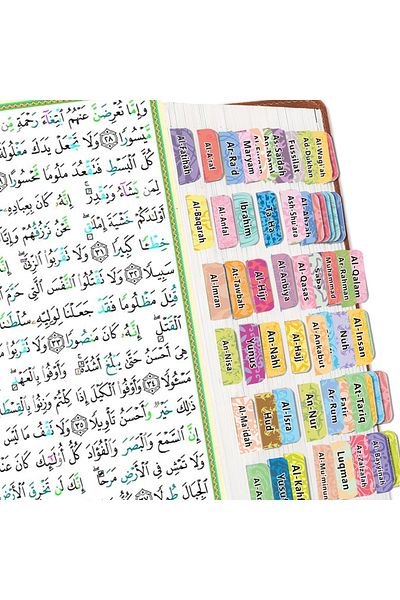 وَإِمَّا تُعْرِضَنَّ عَنْهُمُ ٱبْتِغَآءَ رَحْمَةٍ مِّن
مَّيْسُورًا ٢٨ وَلَا تَجْعَلْ يَدَكَ مَغْلُولَةً
كُلَّ ٱلْبَسْطِ فَتَقْعُدَ مَلُومًا مَّحْسُورًا
لِمَن يَشَآءُ وَيَقْدِرُ إِنَّهُۥ كَانَ بِعِبَادِهِۦ
أَوْلَٰدَكُمْ خَشْيَةَ إِمْلَٰقٍ
نَّحْنُ نَرْزُقُهُمْ
خِطْـًٔا كَبِيرًا ٣١ وَلَا تَقْرَبُوا۟ ٱلزِّنَىٰٓ
سَبِيلًا ٣٢ وَلَا تَقْتُلُوا۟ ٱلنَّفْسَ ٱلَّتِى حَرَّمَ
قُتِلَ مَظْلُومًا فَقَدْ جَعَلْنَا لِوَلِيِّهِۦ سُلْطَٰنًا
ٱلْقَتْلِ إِنَّهُۥ كَانَ مَنصُورًا ٣٣ وَلَا تَقْرَبُوا۟
هِىَ أَحْسَنُ حَتَّىٰ يَبْلُغَ أَشُدَّهُۥ
وَأَوْفُوا۟ بِٱلْعَهْدِ
مَسْـُٔولًا ٣٤ وَأَوْفُوا۟ ٱلْكَيْلَ إِذَا كِلْتُمْ وَزِنُوا۟ بِٱلْقِسْطَاسِ
ذَٰلِكَ خَيْرٌ وَأَحْسَنُ تَأْوِيلًا ٣٥ وَلَا تَقْفُ مَا لَيْسَ
إِنَّ ٱلسَّمْعَ وَٱلْبَصَرَ وَٱلْفُؤَادَ كُلُّ أُو۟لَٰٓئِكَ كَانَ عَنْهُ
وَلَا تَمْشِ فِى ٱلْأَرْضِ مَرَحًا
إِنَّكَ لَن تَخْرِقَ ٱلْأَرْضَ
ٱلْجِبَالَ طُولًا
Al-Fatihah
Al-A'raf
Ar-Ra'd
Maryam
Al-Furqan
As-Sajdah
Fussilat
Ad-Dukhan
Al-Waqi'ah
Al-Baqarah
Al-Anfal
Ibrahim
Ta-Ha
Ash-Shu'ara
Al-Imran
At-Taubah
Al-Hijr
Al-Anbiya
Al-Qasas
Saba
Muhammad
Ar-Rahman
Al-Qalam
An-Nisa
Yunus
An-Nahl
Al-Hajj
Al-Ankabut
Nuh
Al-Insan
Al-Ma'idah
Hud
Al-Isra
An-Nur
Ar-Rum
Fatir
At-Tariq
Yusuf
Al-Kahf
Al-Mu'minun
Luqman
Az-Zalzalah
Al-Bayyinah